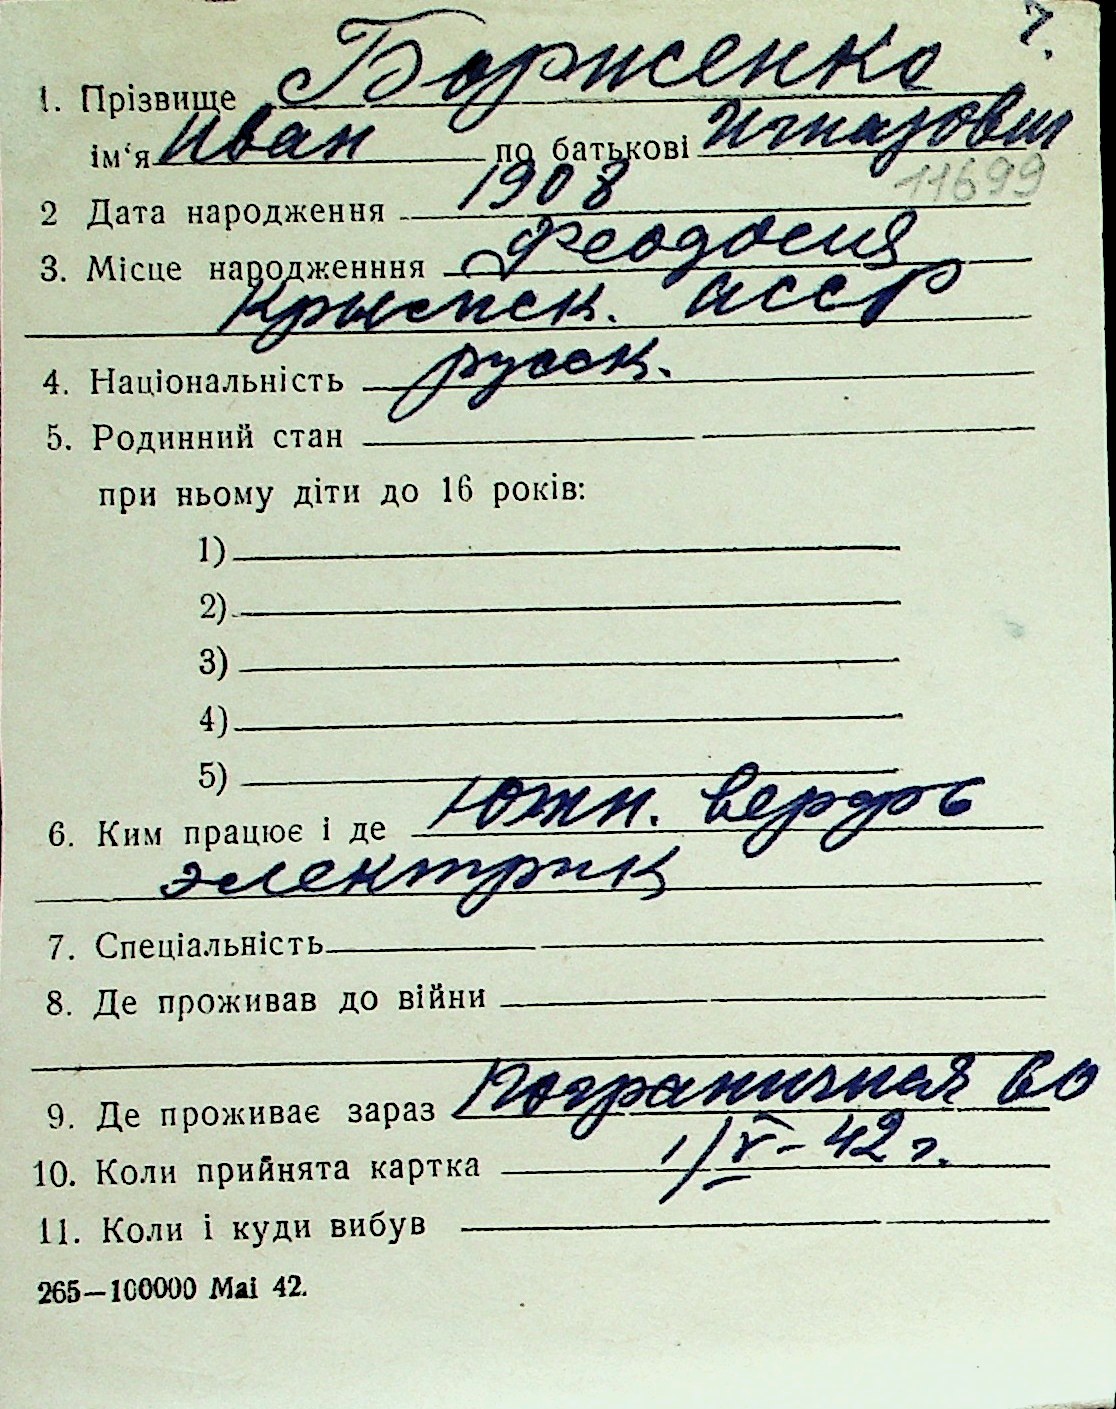 7.
1. Прізвище Борженко
ім‘я Иван по батькові Игнатович
11699
2 Дата народження 1908
3. Місце народженння Феодосия
Крымск. АССР
4. Національність русск.
5. Родинний стан
при ньому діти до 16 років:
1)
2)
3)
4)
5)
6. Ким працює і де Южн. верфь
электрик
7. Спеціальність
8. Де проживав до війни
9. Де проживає зараз Пограничная 60
10. Коли прийнята картка 1/V-42 г.
11. Коли і куди вибув
265—100000 Mai 42.